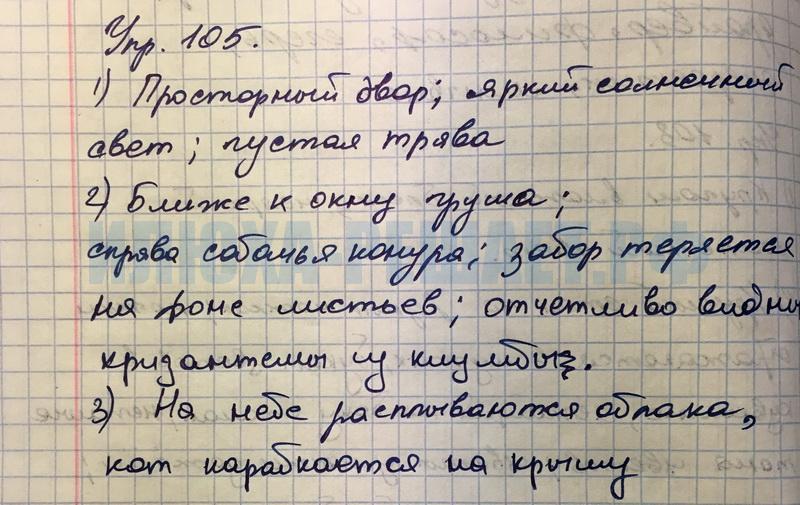 Упр. 105.
1) Просторный двор; яркий солнечный
свет; густая трава
2) Ближе к окну груша;
справа собачья конура; забор теряется
на фоне листьев; отчетливо видны
хризантемы из клумбы.
3) На небе расплываются облака,
кот карабкается на крышу